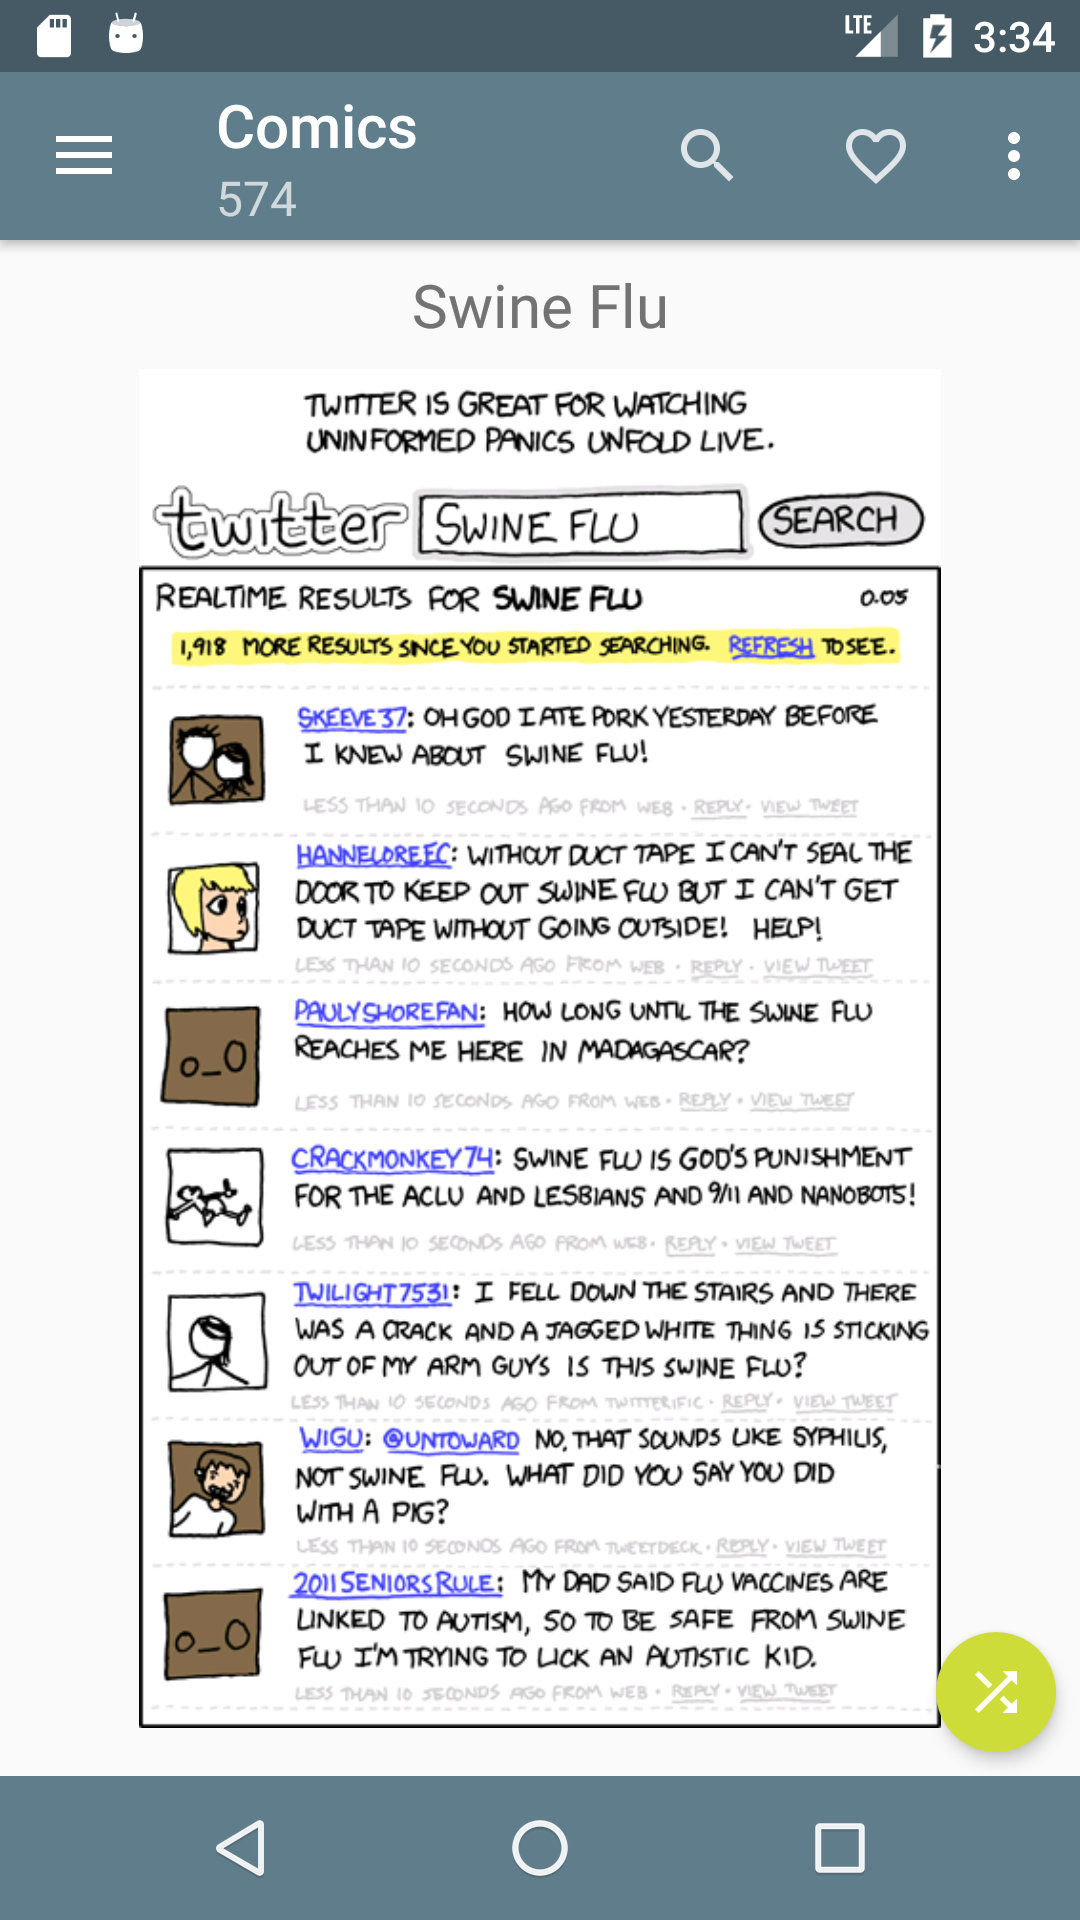 LTE 3:34
Comics
574
Swine Flu
TWITTER IS GREAT FOR WATCHING
UNINFORMED PANICS UNFOLD LIVE.
twitter SWINE FLU SEARCH
REALTIME RESULTS FOR SWINE FLU 0.05
1,918 MORE RESULTS SINCE YOU STARTED SEARCHING. REFRESH TO SEE.
SKEEVE37: OH GOD I ATE PORK YESTERDAY BEFORE
I KNEW ABOUT SWINE FLU!
LESS THAN 10 SECONDS AGO FROM WEB · REPLY · VIEW TWEET
HANNELOREEC: WITHOUT DUCT TAPE I CAN'T SEAL THE
DOOR TO KEEP OUT SWINE FLU BUT I CAN'T GET
DUCT TAPE WITHOUT GOING OUTSIDE! HELP!
LESS THAN 10 SECONDS AGO FROM WEB · REPLY · VIEW TWEET
PAULYSHOREFAN: HOW LONG UNTIL THE SWINE FLU
REACHES ME HERE IN MADAGASCAR?
LESS THAN 10 SECONDS AGO FROM WEB · REPLY · VIEW TWEET
CRACKMONKEY74: SWINE FLU IS GOD'S PUNISHMENT
FOR THE ACLU AND LESBIANS AND 9/11 AND NANOBOTS!
LESS THAN 10 SECONDS AGO FROM WEB · REPLY · VIEW TWEET
TWILIGHT7531: I FELL DOWN THE STAIRS AND THERE
WAS A CRACK AND A JAGGED WHITE THING IS STICKING
OUT OF MY ARM GUYS IS THIS SWINE FLU?
LESS THAN 10 SECONDS AGO FROM TWITTERIFIC · REPLY · VIEW TWEET
WIGU: @UNTOWARD NO, THAT SOUNDS LIKE SYPHILIS,
NOT SWINE FLU. WHAT DID YOU SAY YOU DID
WITH A PIG?
LESS THAN 10 SECONDS AGO FROM TWEETDECK · REPLY · VIEW TWEET
2011SENIORSRULE: MY DAD SAID FLU VACCINES ARE
LINKED TO AUTISM, SO TO BE SAFE FROM SWINE
FLU I'M TRYING TO LICK AN AUTISTIC KID.
LESS THAN 10 SECONDS AGO FROM WEB · REPLY · VIEW TWEET